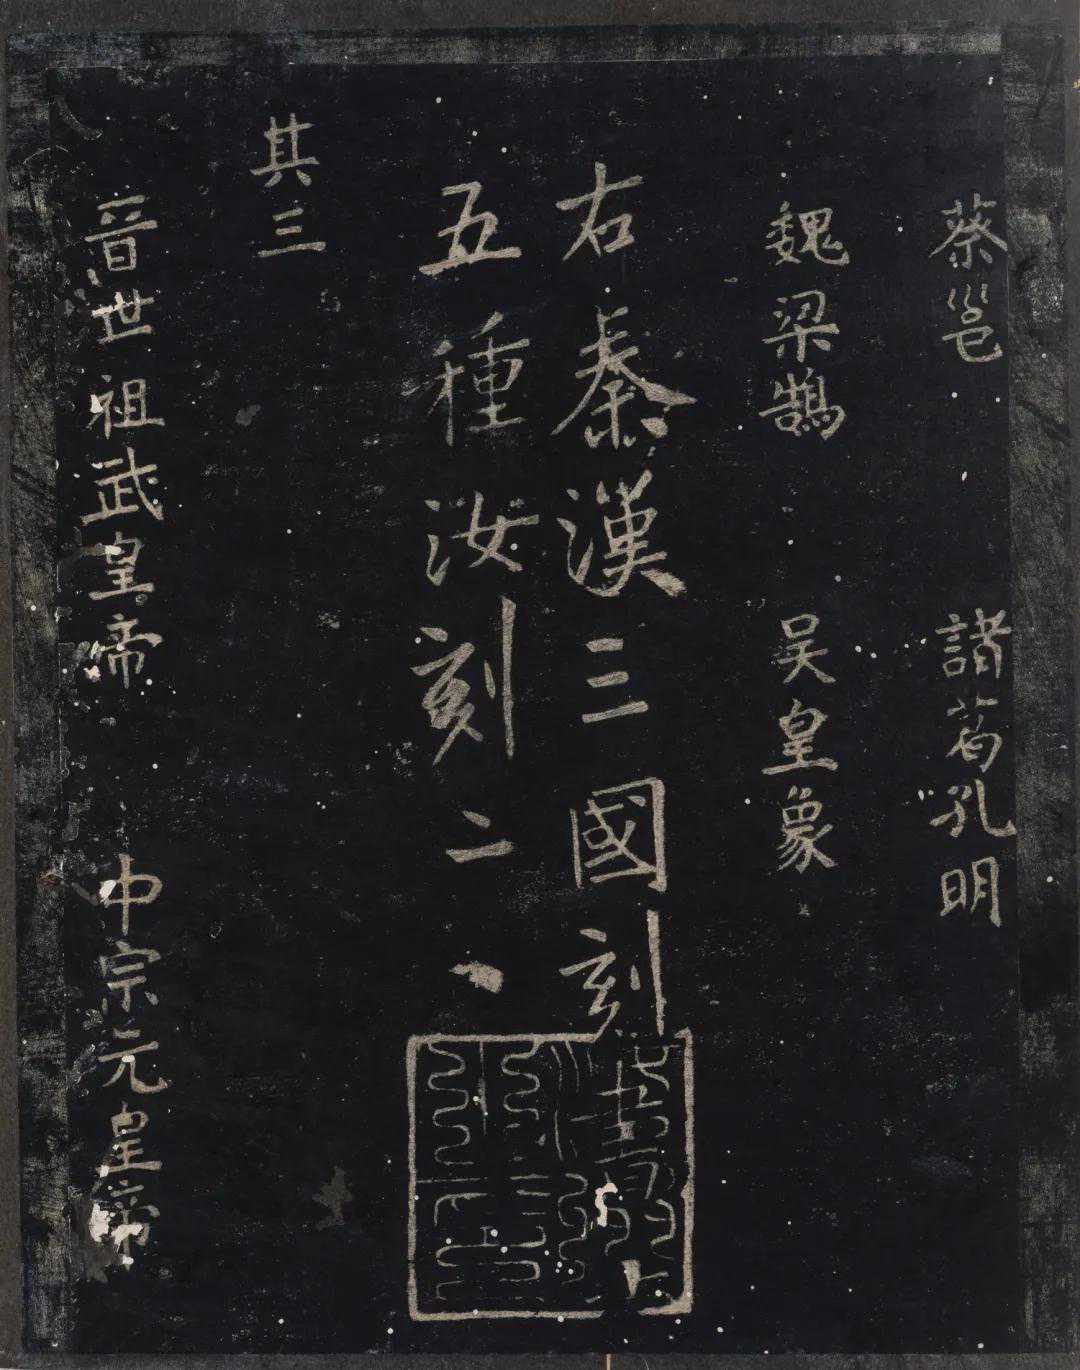 蔡邕 諸葛孔明
魏梁鵠 吴皇象
右秦漢三國刻
五種汝刻二
其三
晉世祖武皇帝 中宗元皇帝